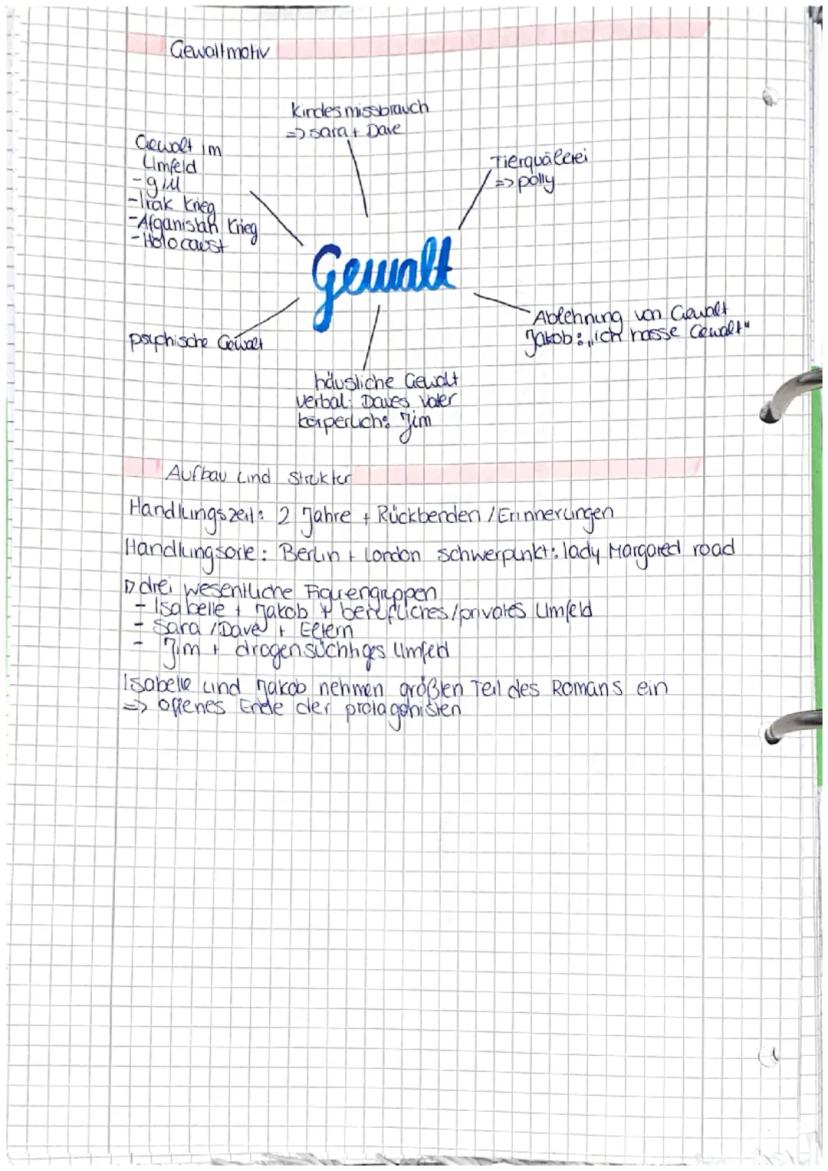 Gewaltmotiv
Kindesmissbrauch
=> Sara + Dave
Gewalt im
Umfeld
- 9/11
- Irak Krieg
- Afganistan Krieg
- Holocaust
Tierquälerei
=> polly
Gewalt
Ablehnung von Gewalt
Jakob: „Ich hasse Gewalt"
psychische Gewalt
häusliche Gewalt
verbal: Daves Vater
körperlich: Jim
Aufbau und Struktur
Handlungszeit: 2 Jahre + Rückbenden / Erinnerungen
Handlungsorte: Berlin + London schwerpunkt: lady Margared road
▷ drei wesentliche Figurengruppen
- Isabelle + Jakob + berufliches/privates Umfeld
- Sara / Dave + Eltern
- Jim + drogensüchtiges Umfeld
Isabelle und Jakob nehmen größten Teil des Romans ein
=> offenes Ende der protagonisten